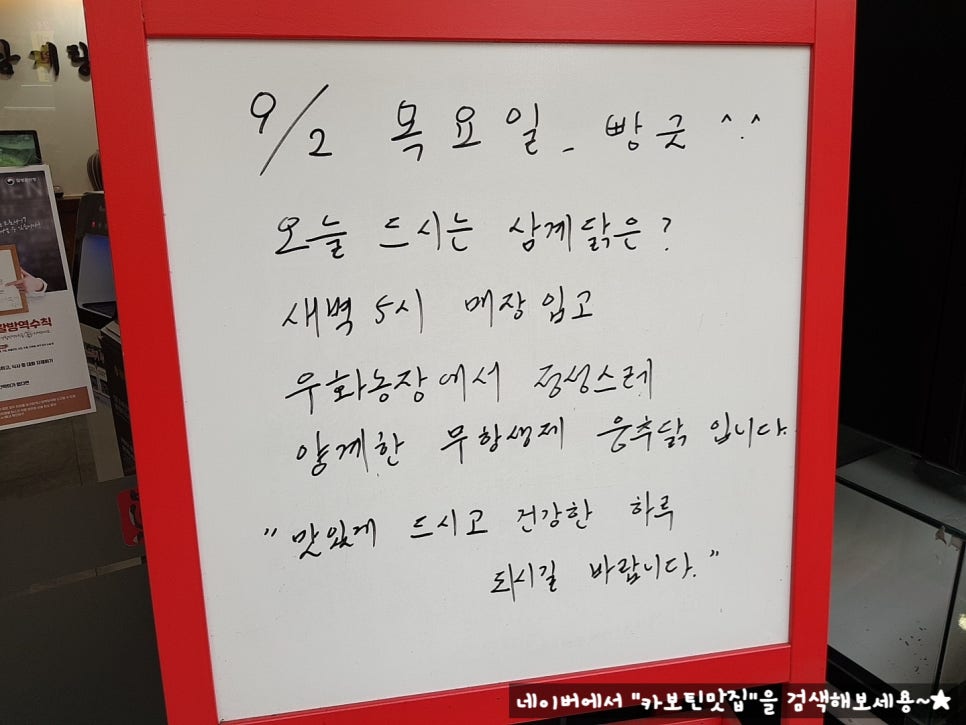 9/2 목요일_ 빵긋 ^.^
오늘 드시는 삼계닭은?
새벽 5시 매장입고
우화농장에서 정성스레
양계한 무항생제 웅추닭 입니다.
"맛있게 드시고 건강한 하루
되시길 바랍니다."
방역수칙
네이버에서 "카보틴맛집"을 검색해보세용~★